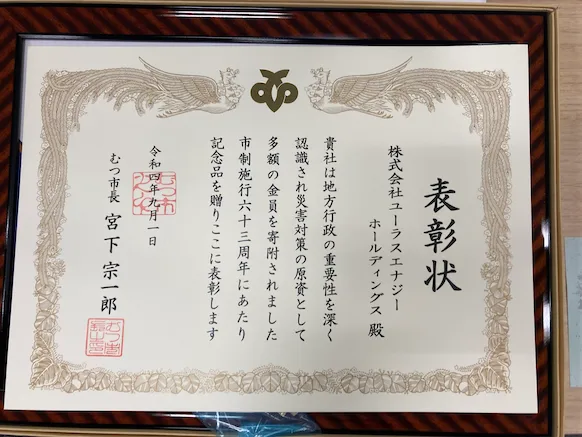 表彰状
株式会社ユーラスエナジー
ホールディングス 殿
貴社は地方行政の重要性を深く
認識され災害対策の原資として
多額の金員を寄附されました
市制施行六十三周年にあたり
記念品を贈りここに表彰します
令和四年九月一日
むつ市長 宮下 宗一郎